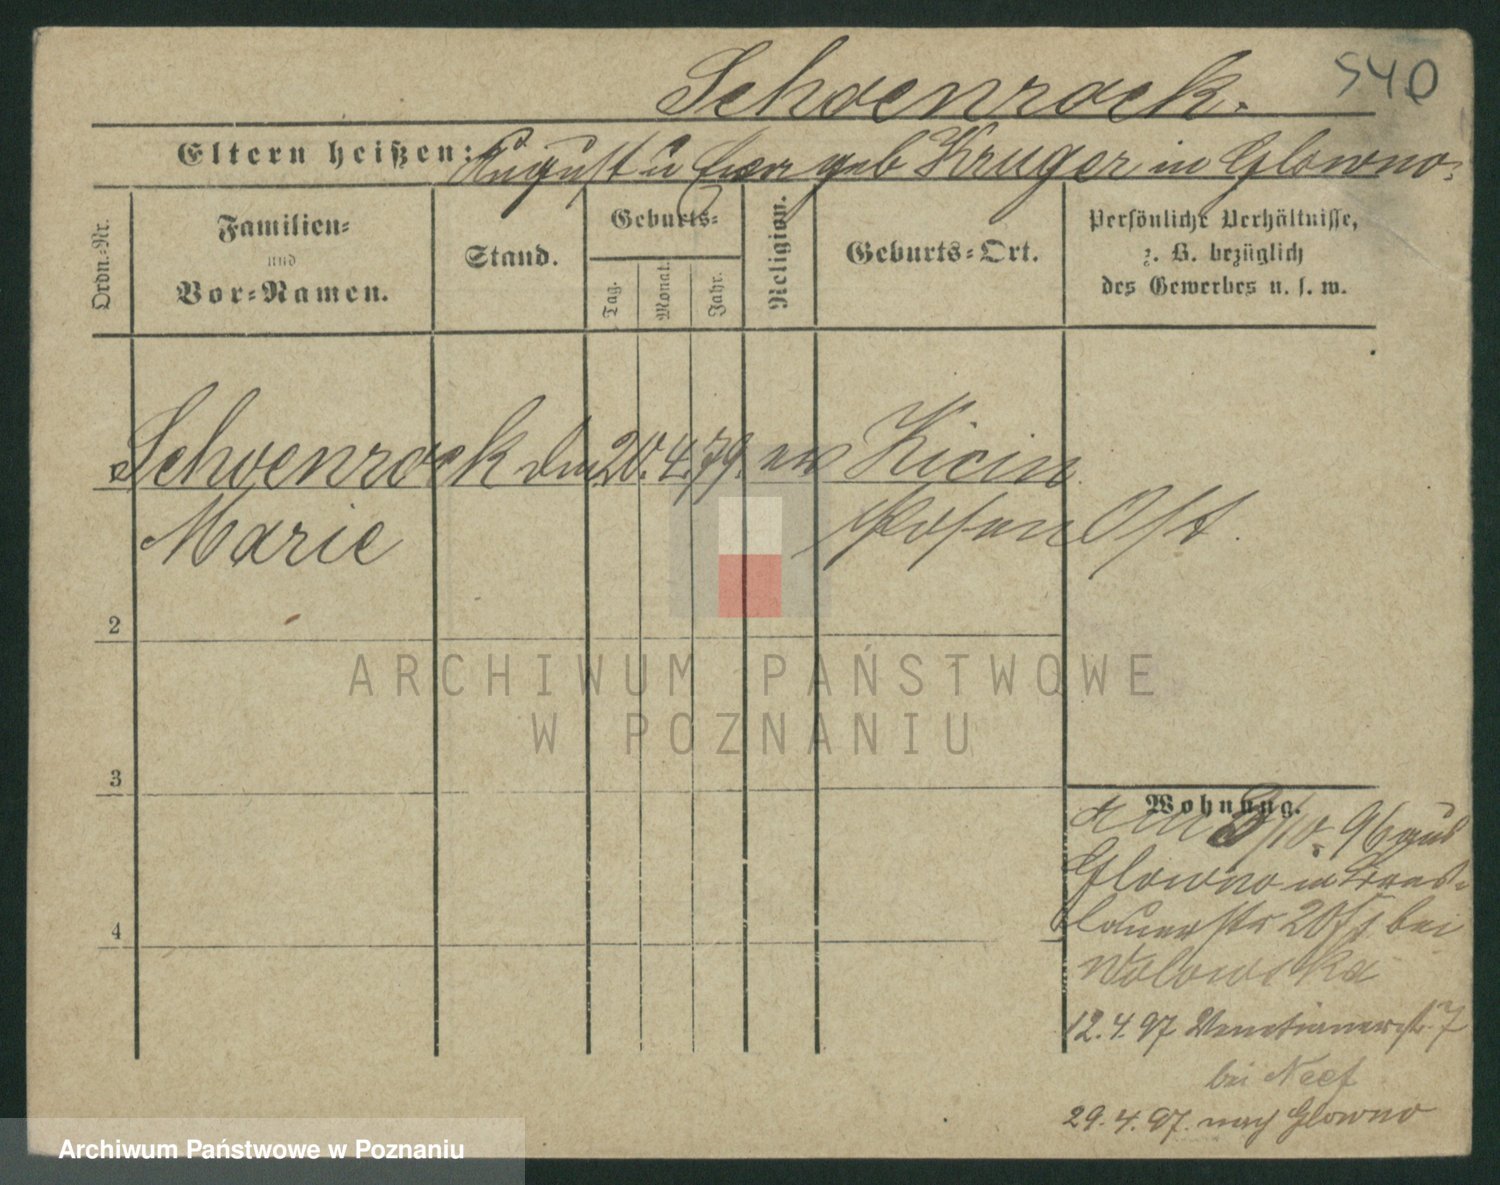 540
Schoenrock.
Eltern heißen: August u geb Kruger in Glowno.
Ordn.-Nr.
Familien-
und
Vor-Namen.
Stand.
Geburts-
Tag.
Monat.
Jahr.
Religion.
Geburts-Ort.
Persönliche Verhältnisse,
z. B. bezüglich
des Gewerbes u. s. w.
Schoenrock den 20. 4. 79. Kicin
Marie Posen Ost.
2
3
4
Wohnung.
den 3/10. 96 aus
Glowno in Bres-
lauerstr 20 bei
12. 4. 97 Venetianerst. 7
bei Neef
29. 4. 97. nach Glowno
ARCHIWUM PAŃSTWOWE
W POZNANIU
Archiwum Państwowe w Poznaniu